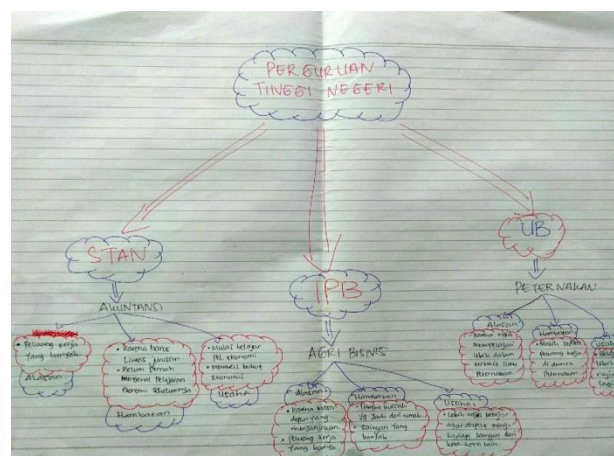 PERGURUAN
TINGGI NEGERI
STAN
AKUNTANSI
• Peluang kerja
yang banyak
Alasan
• Karena harus
Lintas jurusan
• Belum pernah
mengenal pelajaran
Ekonomi sebelumnya
Hambatan
• Mulai belajar
pel ekonomi
• Membeli buku
ekonomi
Usaha
IPB
AGRI BISNIS
Alasan
• karena masa
depan yang
menjanjikan
• peluang kerja
yang banyak
Hambatan
• Tempat kuliah
yg jauh dari rumah
• Saingan yang
banyak
Usaha
• Lebih rajin belajar
agar dapat meng-
hadapi saingan dari
kota-kota lain
UB
PETERNAKAN
Alasan
ingin
mempelajari
lebih dalam
ilmu
Peternakan
Hambatan
• Masih sedikit
peluang kerja
di dunia
Peternakan
Usaha